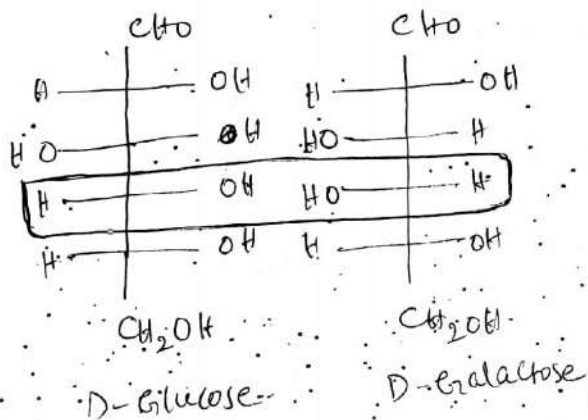 CHO CHO
H OH H OH
HO H HO H
H OH HO H
H OH H OH
CH₂OH CH₂OH
D-Glucose D-Galactose